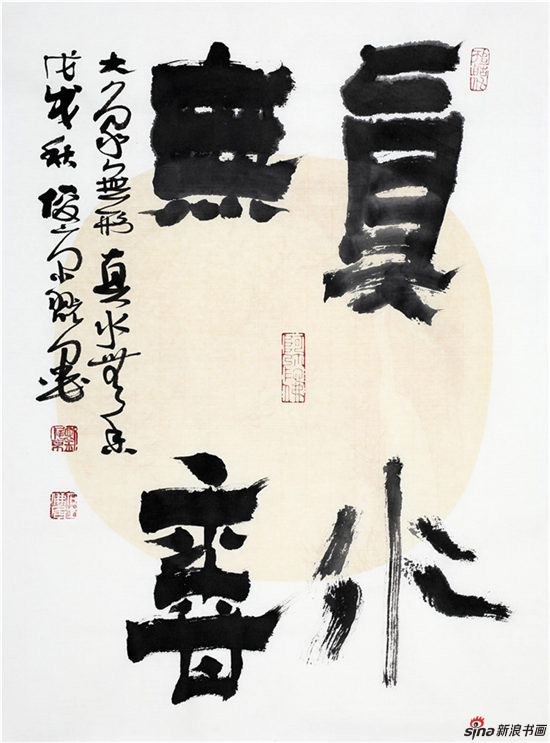 真水
無香
大象無形 真水無香
戊戌秋 俊京
sina 新浪书画